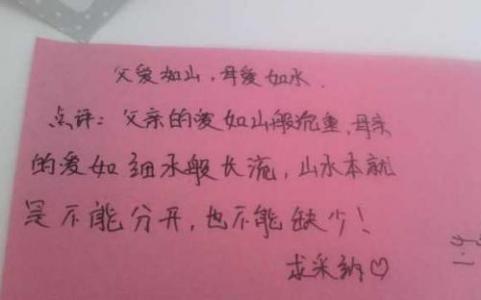 父爱如山，母爱如水.
点评：父亲的爱如山般沉重，母亲
的爱如细水般长流，山水本就
是不能分开，也不能缺少！
求采纳♡